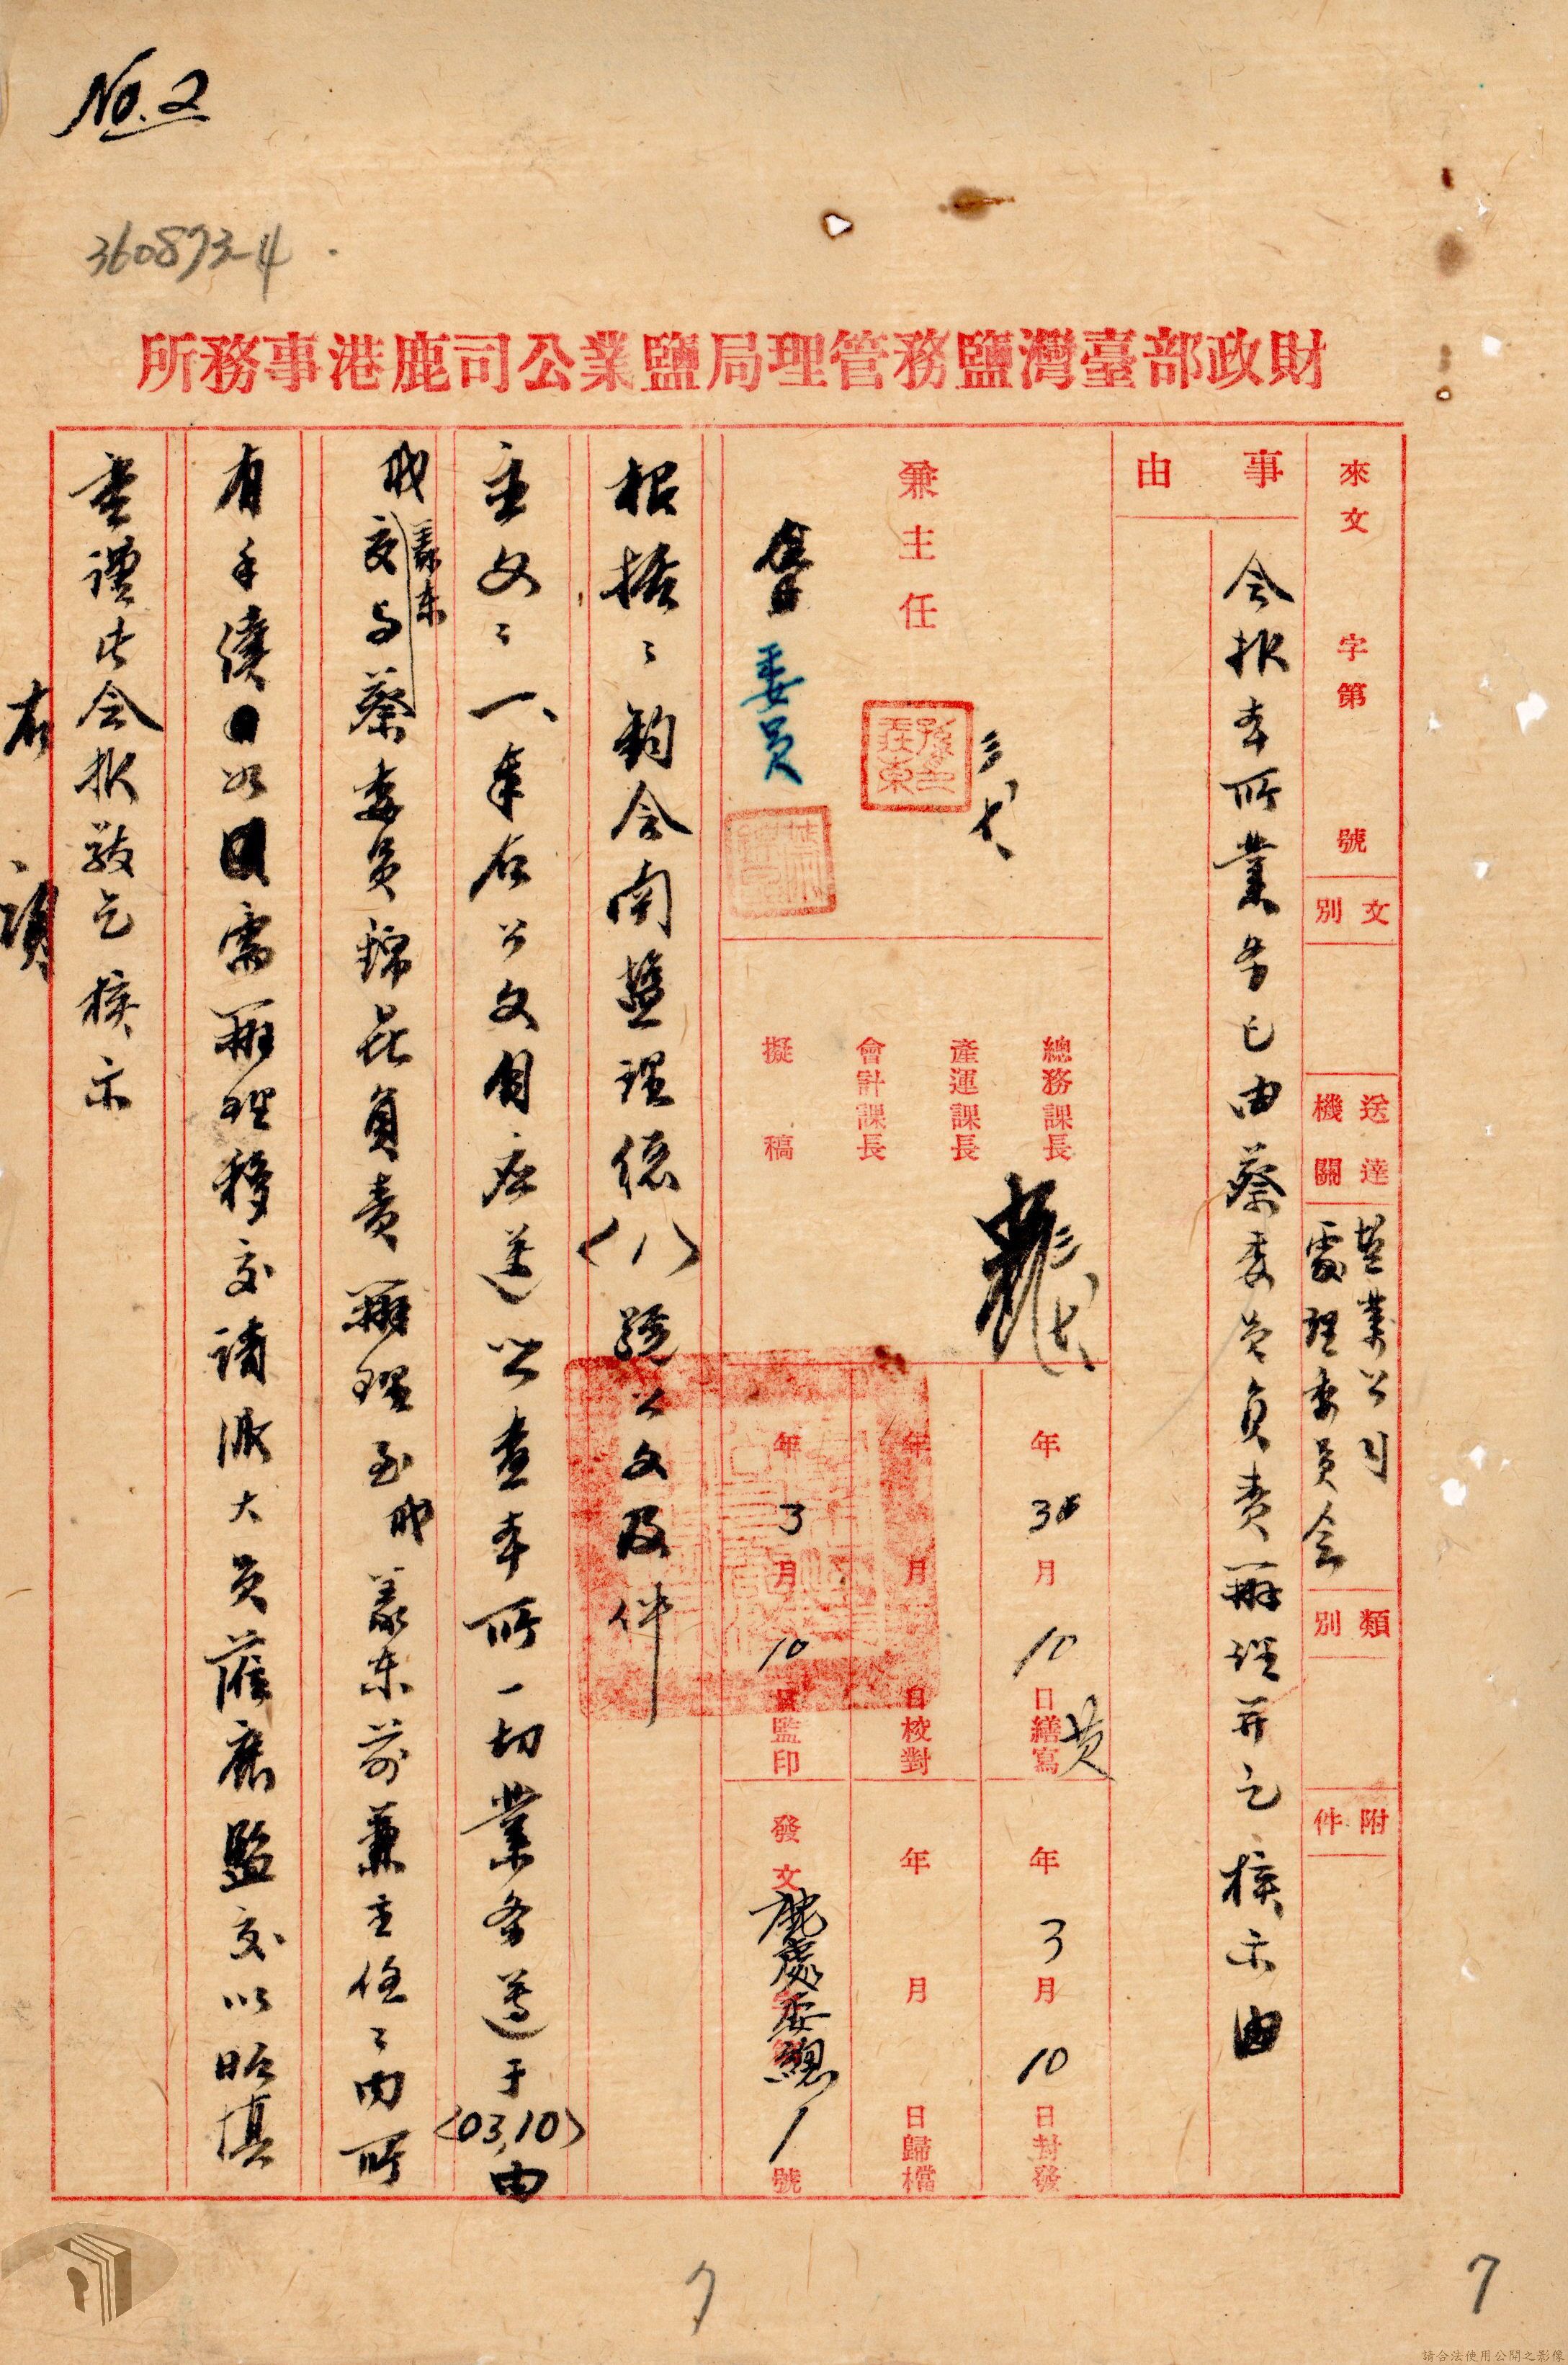 No.2
360873-4
財政部臺灣鹽務管理局鹽業公司鹿港事務所
來文 字第 號
文別
送達機關
塩業公司
處理委員会
類別
附件
事由
会报本所業务已由蔡委员负责辦理并乞核示由
兼主任
三、七、
委員
總務課長
產運課長
會計課長
擬稿
三、七、
年 3 月 10 日繕寫 黄
年 月 日校對
年 3 月 10 日監印
年 3 月 10 日封發
年 月 日歸檔
發文 鹿處委總字第 1 號
鈞会南塩理總〈八〉號公文及件
主文：一、奉右公文自应遵照查本所一切業务遵于〈03,10〉由
職義东交与蔡委员錦昆負责辦理至职義东前兼主任之内所
有手續如需辦理移交請派大员蒞鹿監交以昭慎
重謹此会报敬乞核示
右
項
7
7
請合法使用公開之影像